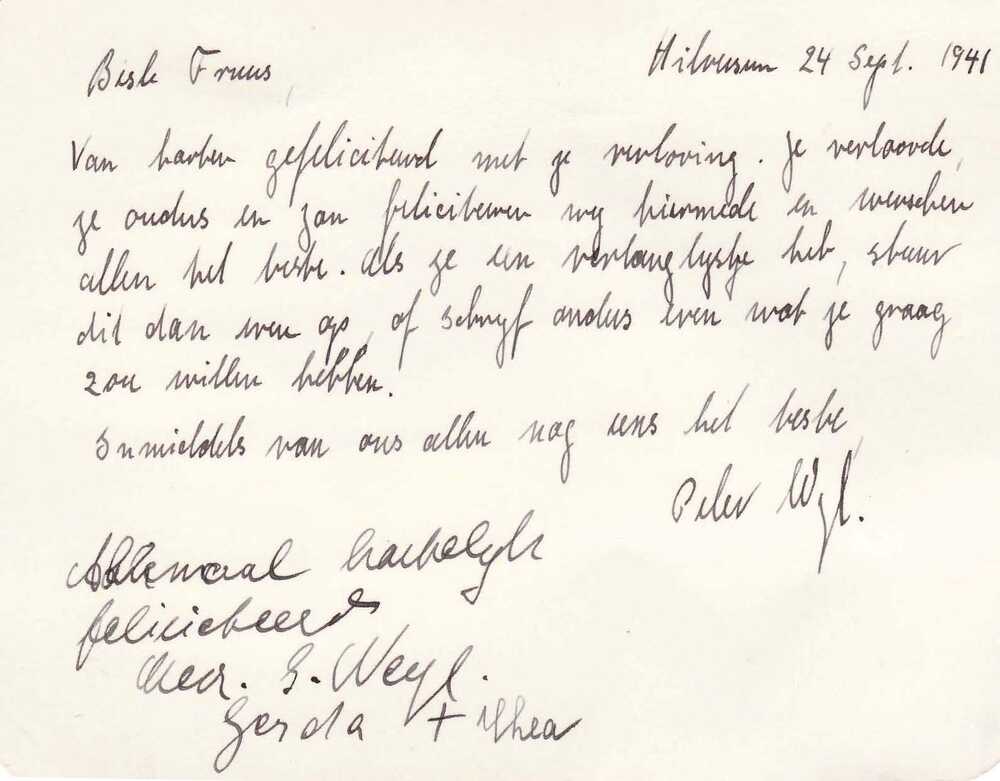 Hilversum 24 Sept. 1941
Beste Truus,
Van harten gefeliciteerd met je verloving. Je verloofde,
je ouders en zon feliciteeren wy hiermede en wenschen
allen het beste. Als je een verlanglystje heb, stuur
dit dan even op, of schryf anders even wat je graag
zou willen hebben.
Inmiddels van ons allen nog eens het beste,
Peter Wyl.
Allemaal hartelyk
feliciteerd
Mevr. G. Weyl.
Gerda + Thea